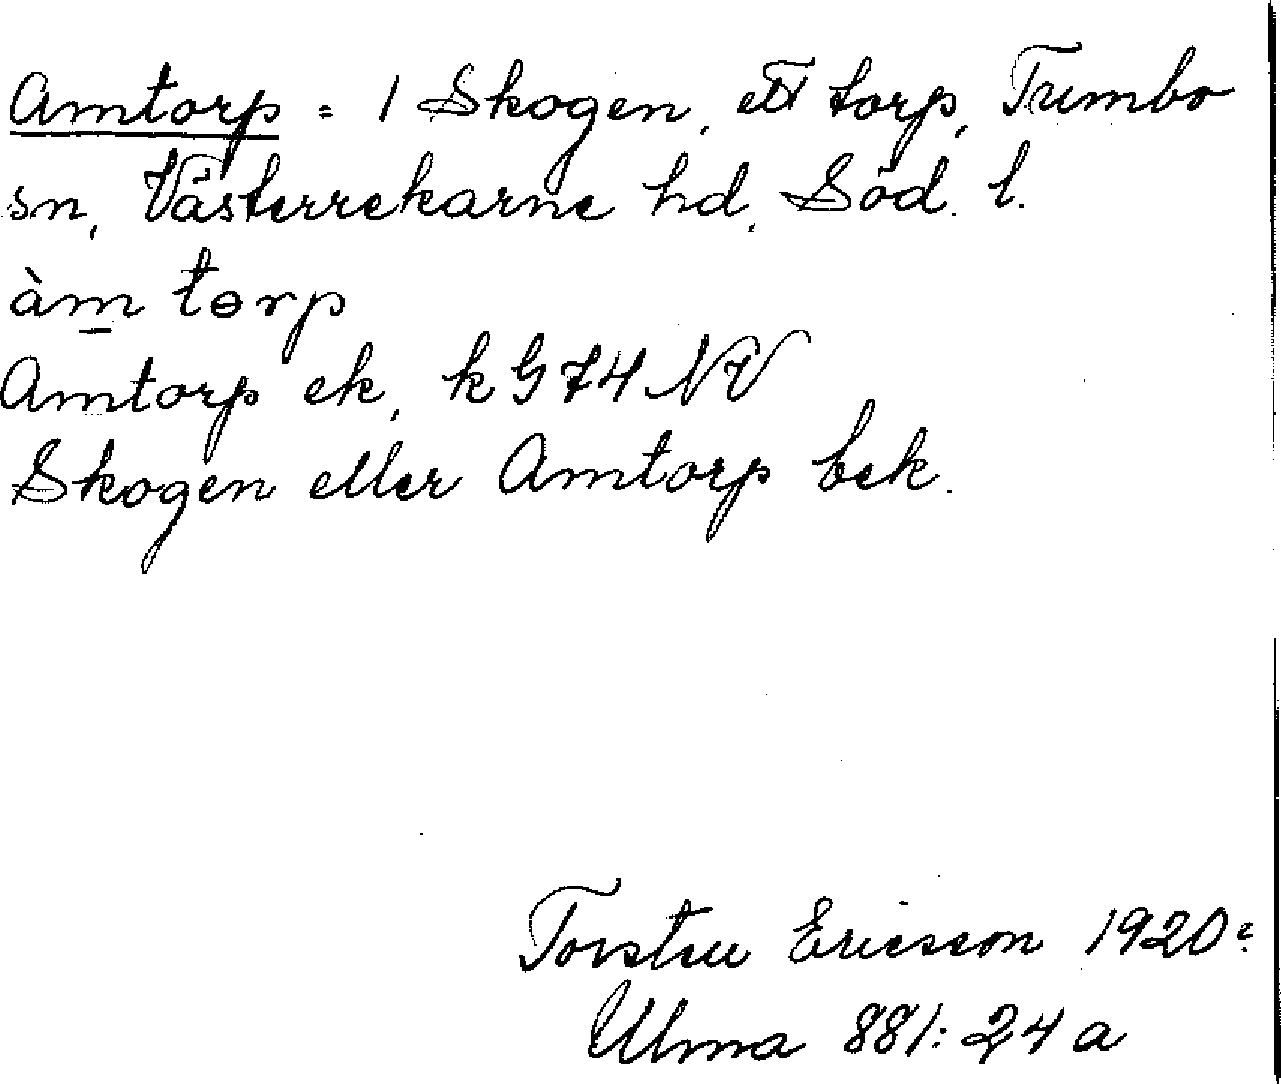 Amtorp = 1 Skogen, ett torp, Tumbo
sn, Västerrekarne hd, Söd. l.
àm tɵrp
Amtorp ek, k G 74 NV
Skogen eller Amtorp bek.
Torsten Ericsson 1920
Ulma 881:24 a